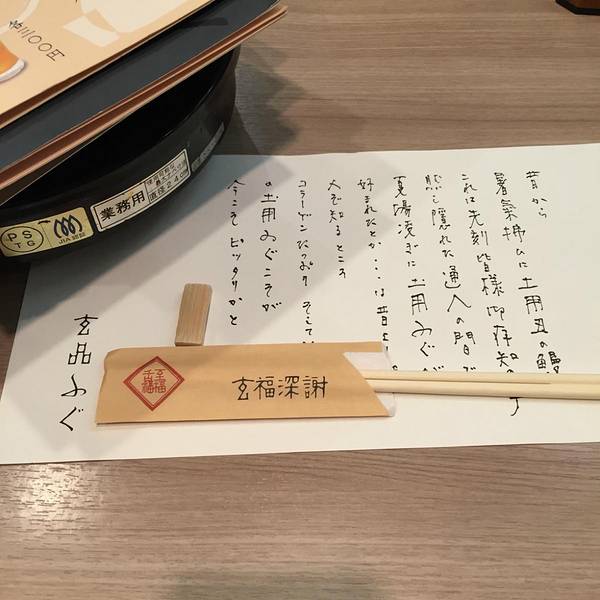 昔から
暑氣拂ひに土用丑の鰻
これは先刻皆様御存知の
然し隠れた通人の間で
夏場凌ぎに土用ふぐが
好まれたとか・・・は昔
人ぞ知るところ
コラーゲンたっぷり そして
の土用ふぐこそが
今こそピッタリかと
玄品ふぐ
玄福深謝
業務用
直径24cm
PS
TG
JIA認証